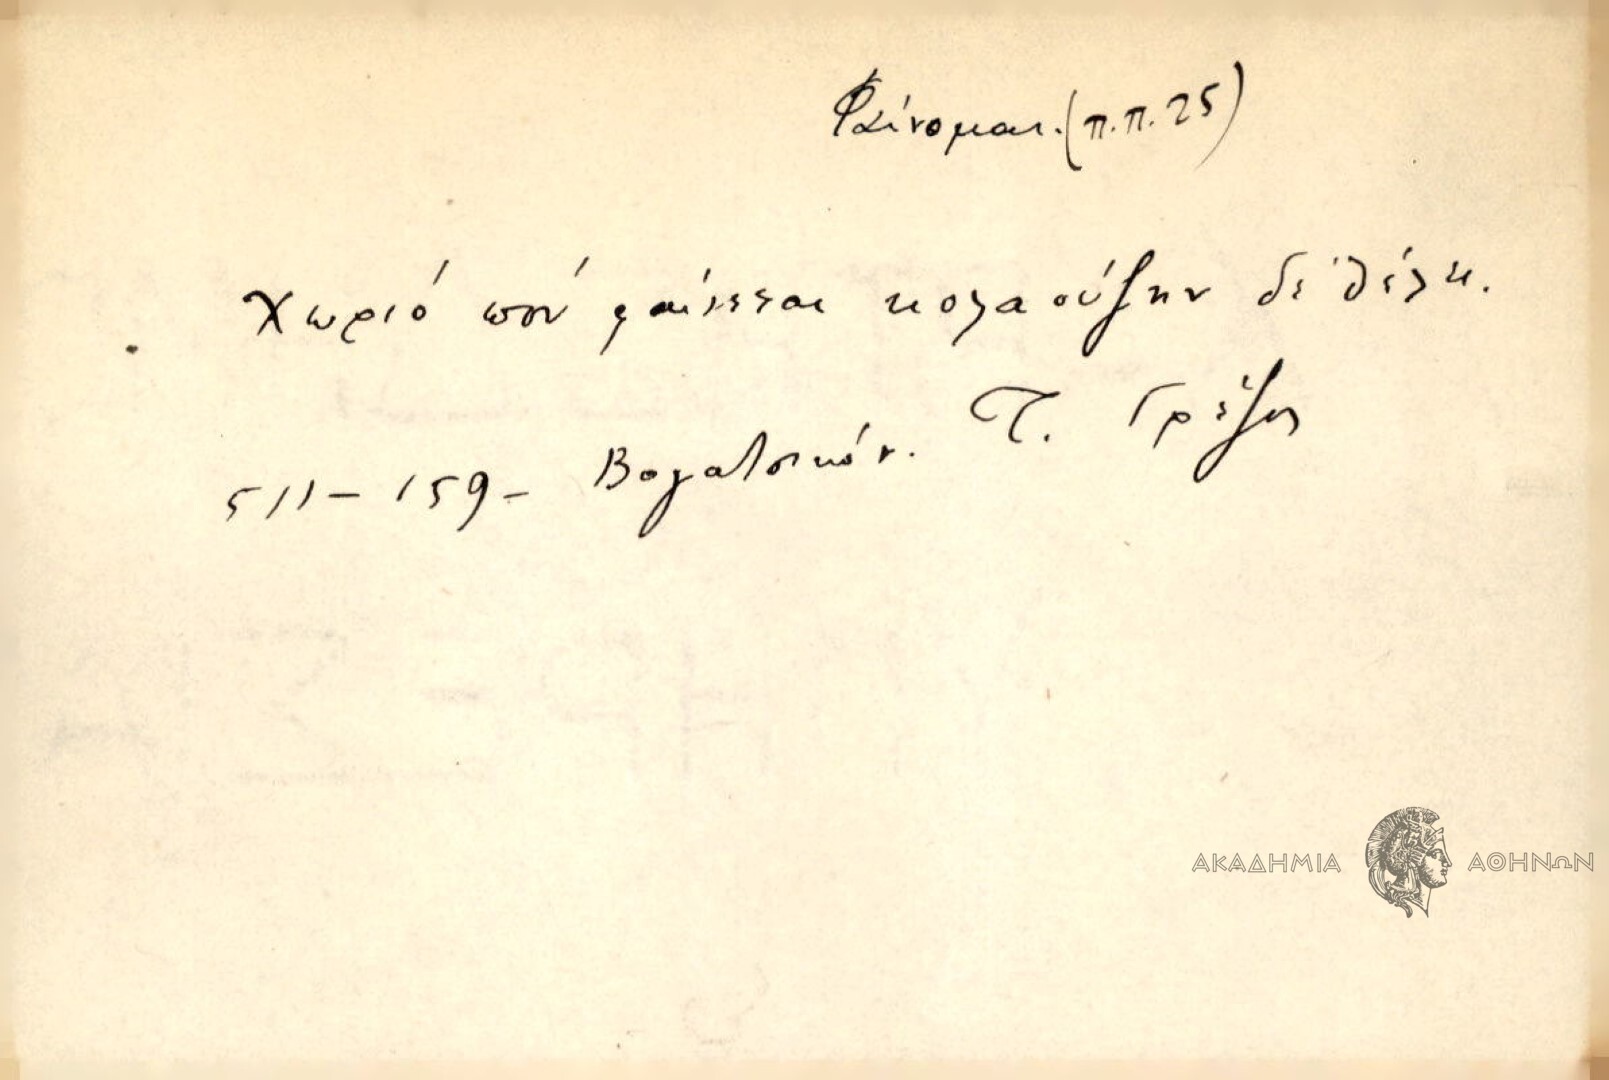 Φαίνομαι. (π.π. 25)
Χωριό πού φαίνεται κολαούζην δέ θέλει.
511 – 159 – Βογατσικόν. Τ. Γρέζος
ΑΚΑΔΗΜΙΑ ΑΘΗΝΩΝ